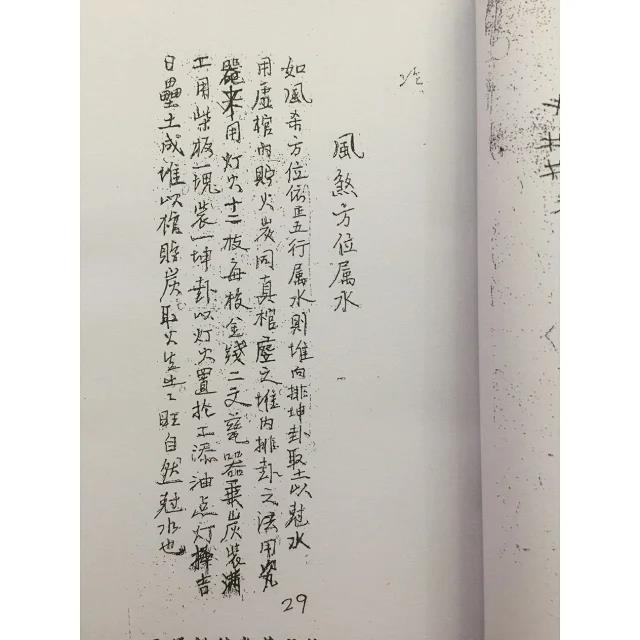 風煞方位属水
如風杀方位依正五行属水則堆内排坤卦取土以尅水
用虚棺内貯火炭同真棺壅之堆内排卦之法用瓷
器来用灯火十二枝每枝金錢二文瓷器乗炭装滿
工用柴板一塊装一坤卦以灯火置扵工添油点灯擇吉
日壘土成堆以棺貯炭取火生土土旺自然尅水也
29